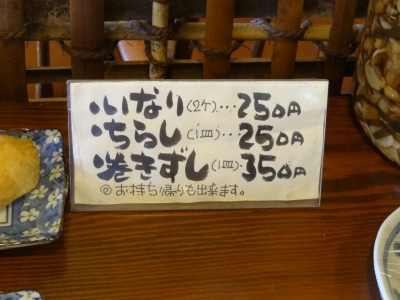 いなり(2ケ)・・・250円
ちらし(1皿)・・250円
巻きずし(1皿)・350円
◎お持ち帰りも出来ます。